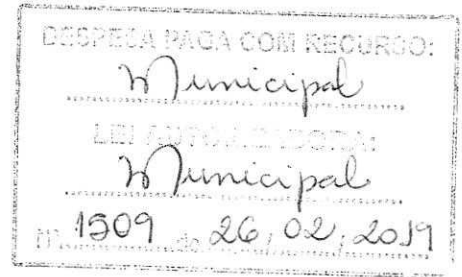 DESPESA PAGA COM RECURSO:
Municipal
LEI AUTORIZADORA:
Municipal
Nº 1509 de 26, 02, 2019